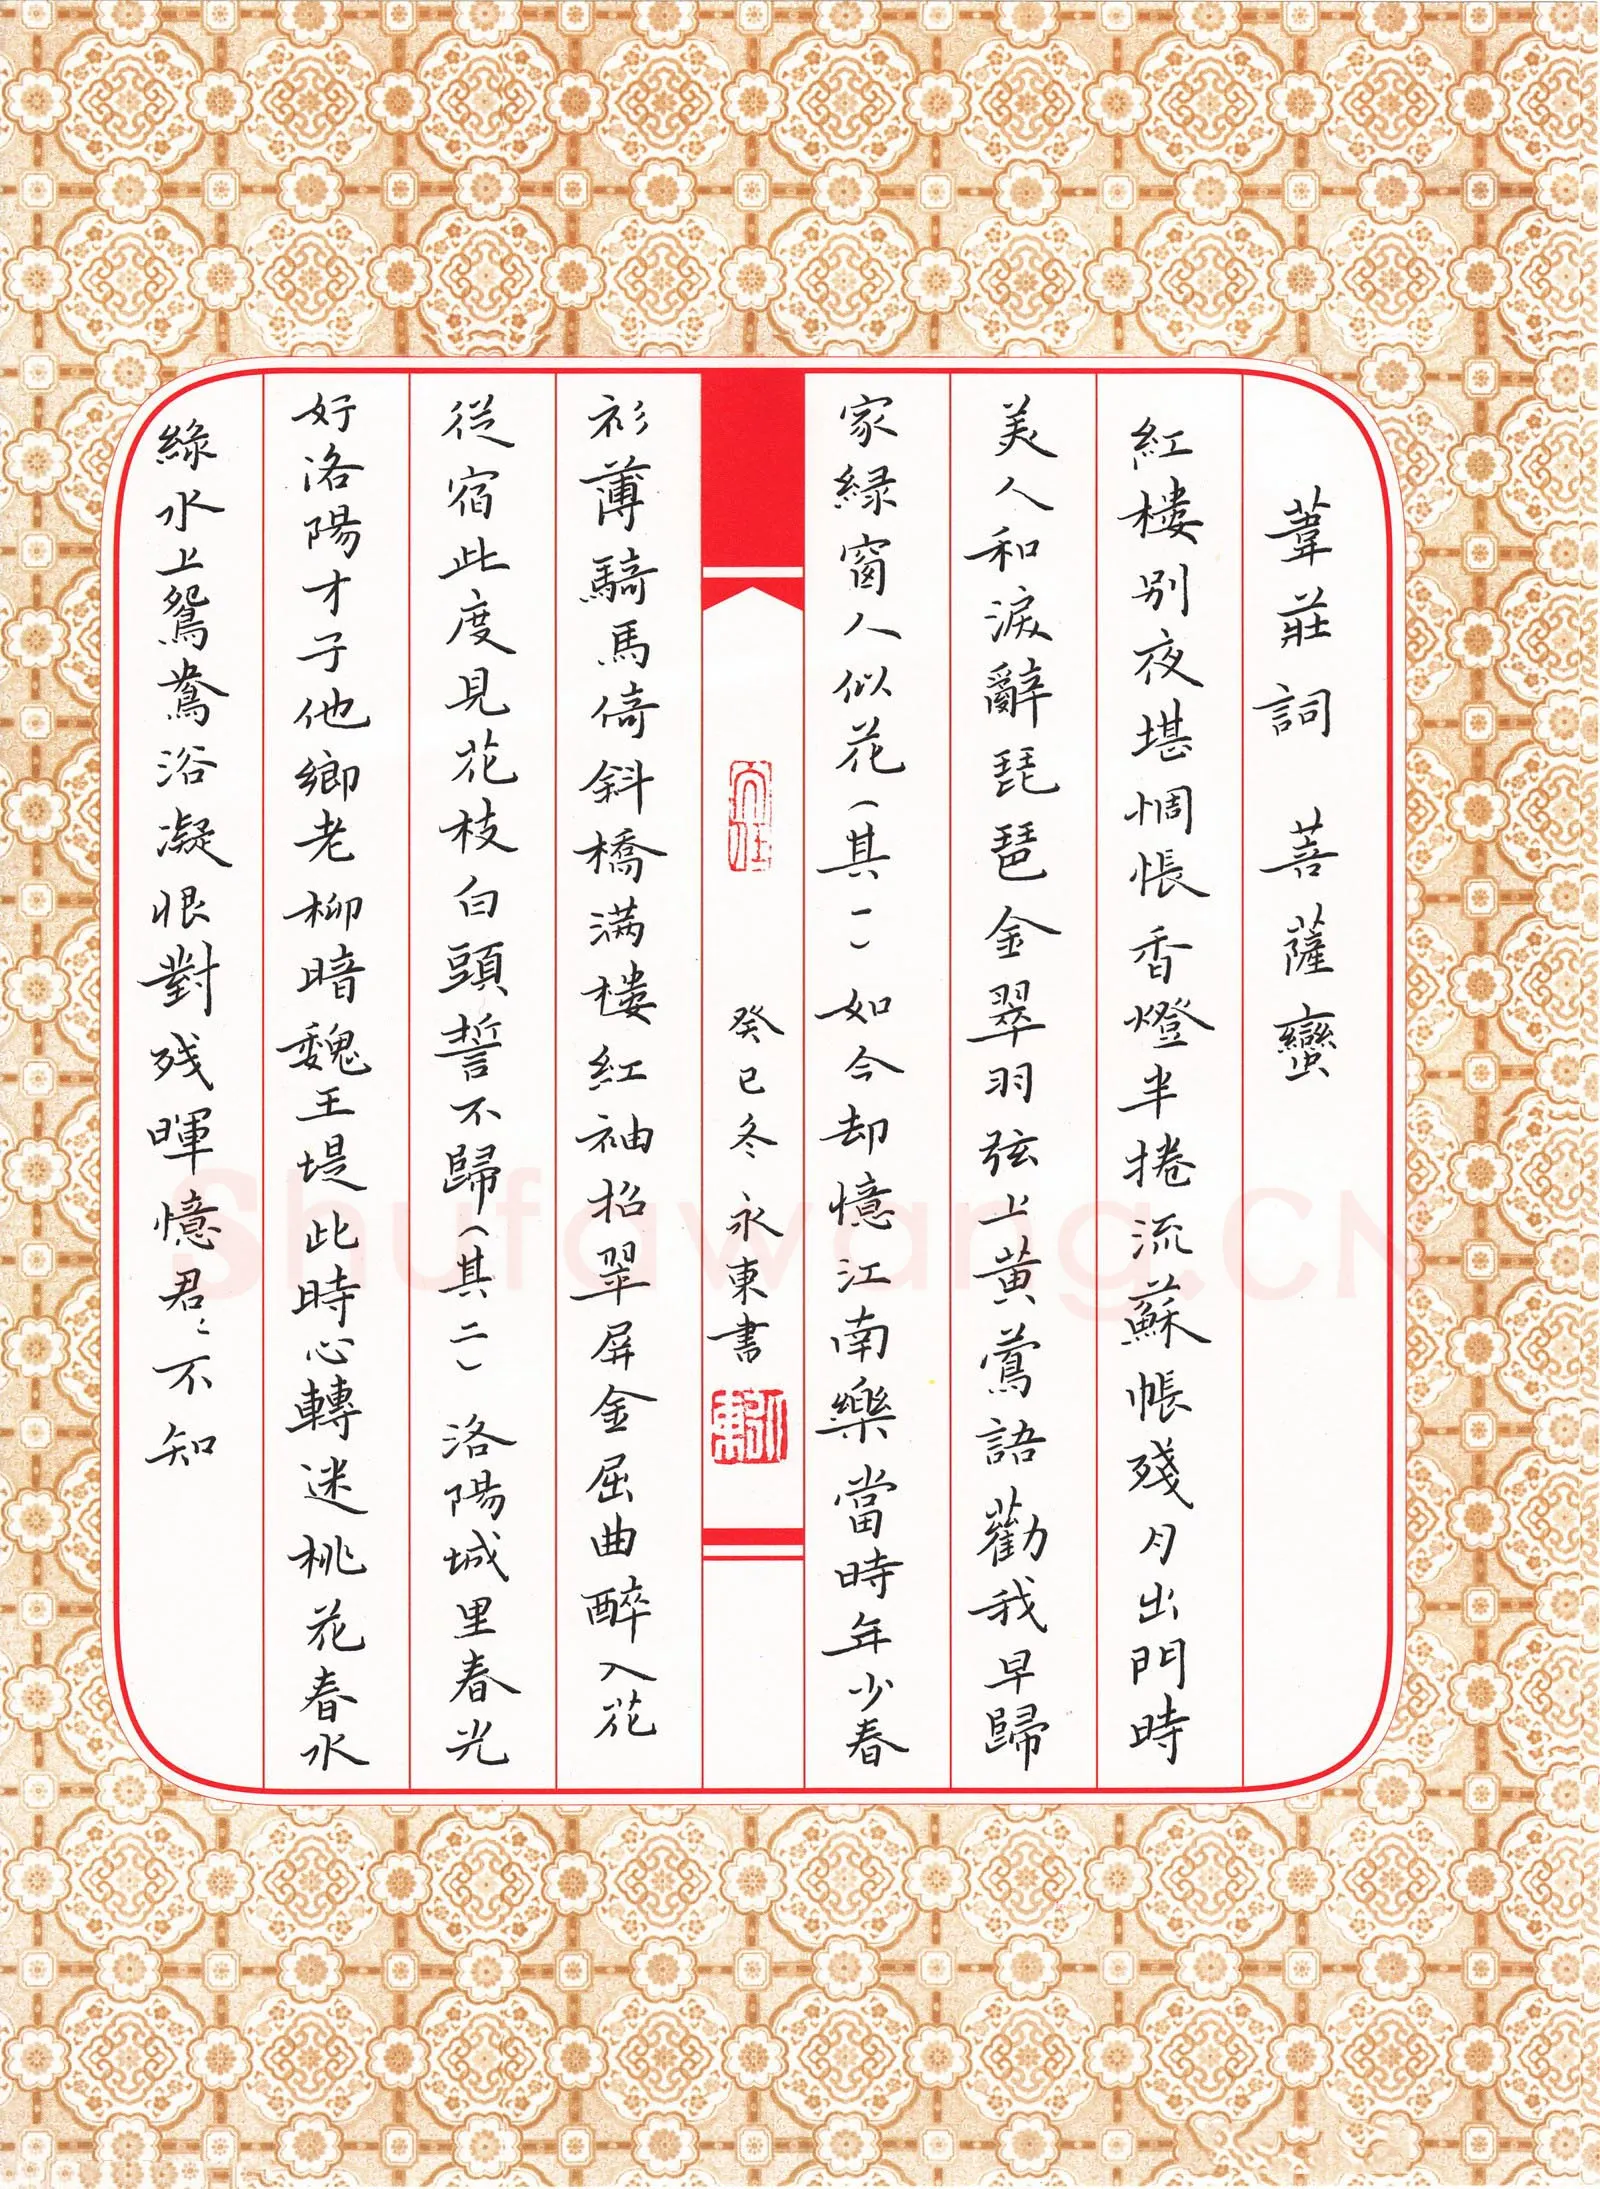 葦莊詞　菩薩蠻
紅樓别夜堪惆悵香燈半捲流蘇帳殘月出門時
美人和淚辭琵琶金翠羽弦上黃鶯語勸我早歸
家緑窗人似花（其一）如今却憶江南樂當時年少春
癸巳冬　永東書
衫薄騎馬倚斜橋满樓紅袖招翠屏金屈曲醉入花
從宿此度見花枝白頭誓不歸（其二）　洛陽城里春光
好洛陽才子他鄉老柳暗魏王堤此時心轉迷桃花春水
緑水上鴛鴦浴凝恨對残暉憶君々不知
Shufawang.CN